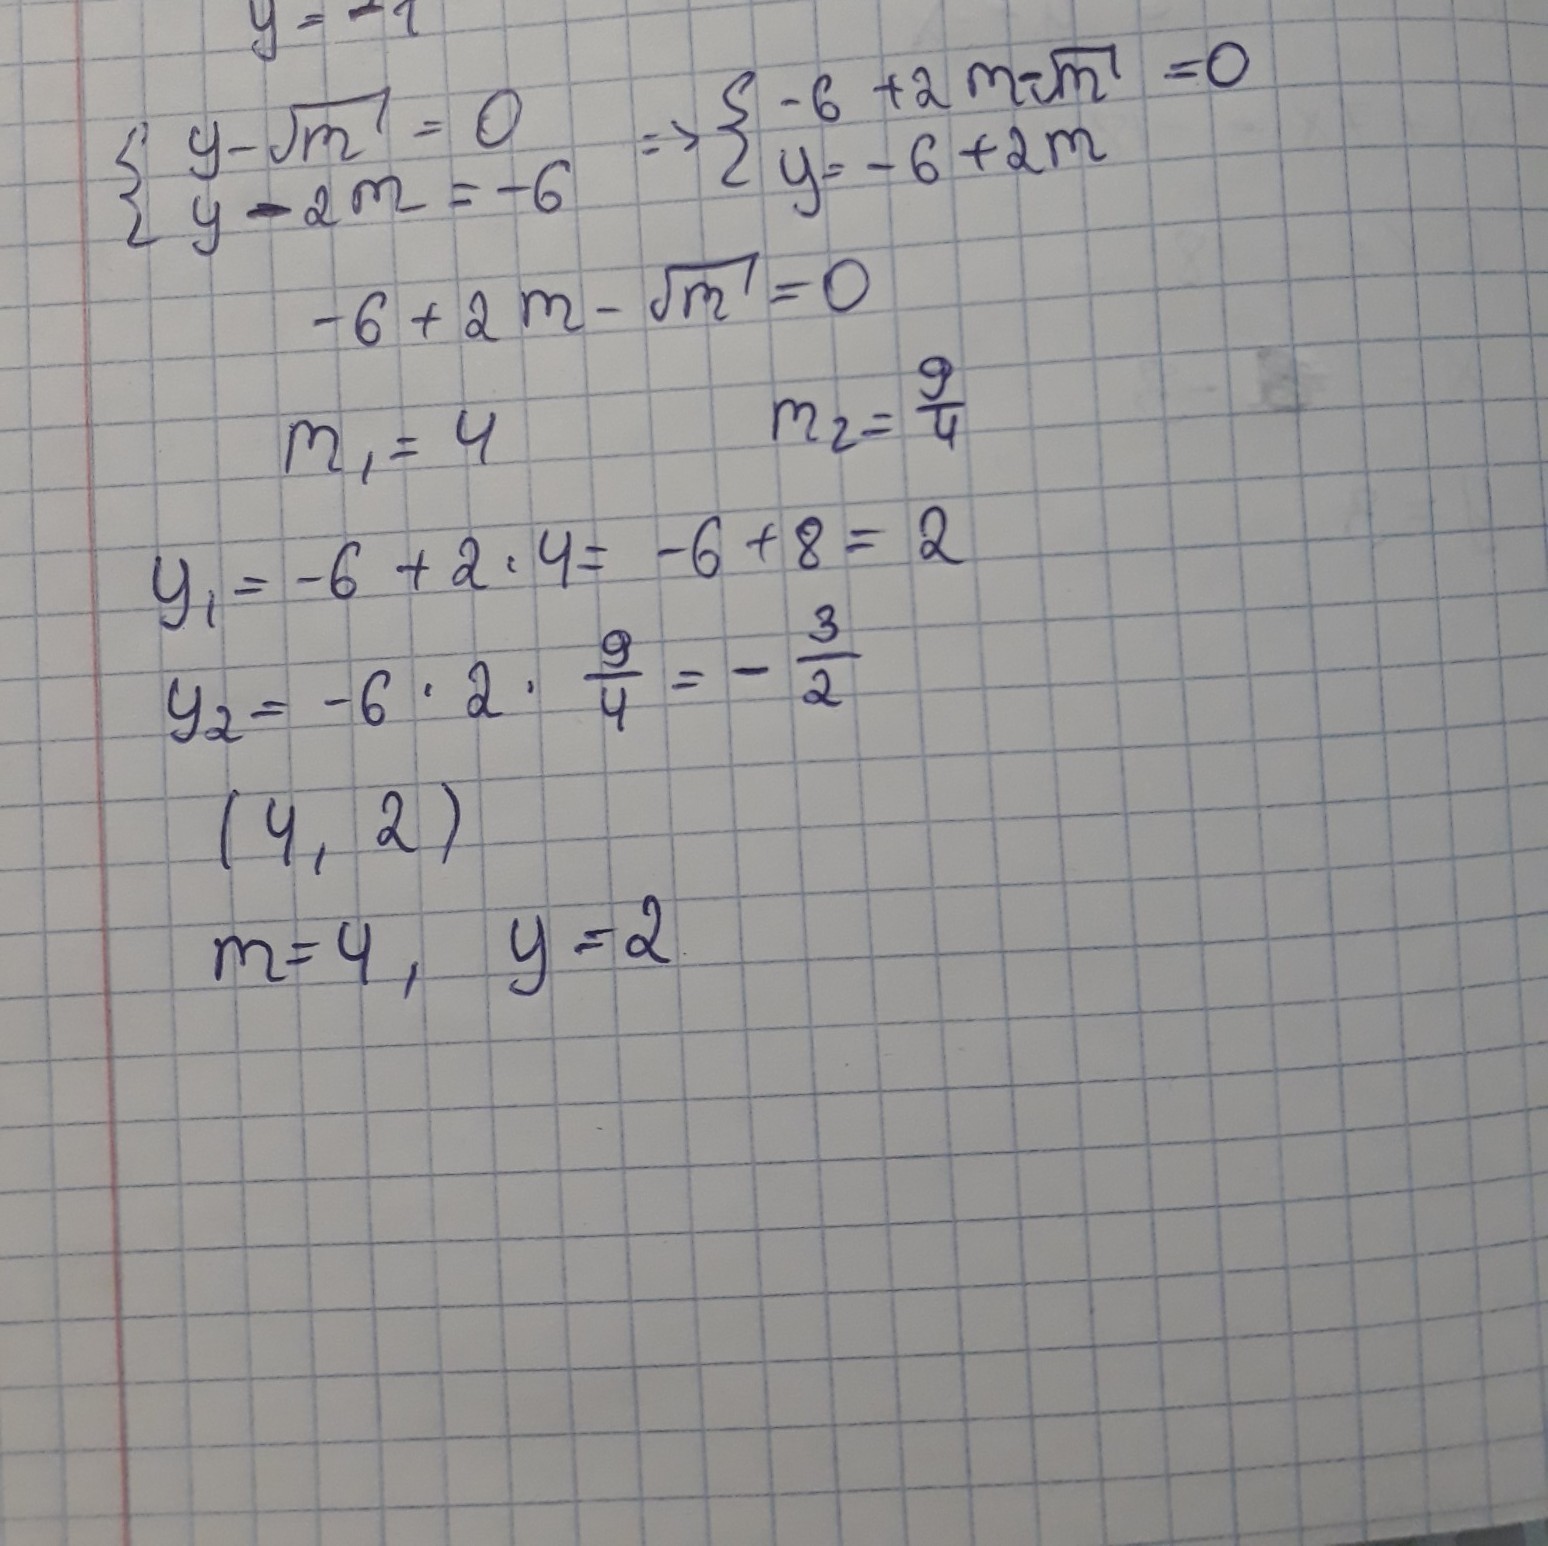 y = -1
{ y - √m = 0 => { -6 + 2m - √m = 0
{ y - 2m = -6 { y = -6 + 2m
-6 + 2m - √m = 0
m₁ = 4 m₂ = 9/4
y₁ = -6 + 2 · 4 = -6 + 8 = 2
y₂ = -6 · 2 · 9/4 = - 3/2
(4, 2)
m = 4, y = 2